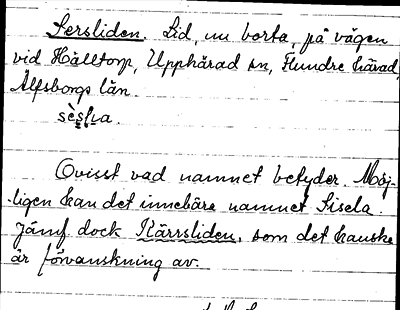 Sersliden. Lid, nu borta, på vägen
vid Hälltorp, Upphärad sn, Flundre härad,
Älfsborgs län.
Ovisst vad namnet betyder. Möj-
-ligen kan det innebära namnet Sisela.
Jämf dock Kärrsliden, som det kanske
är förvanskning av.